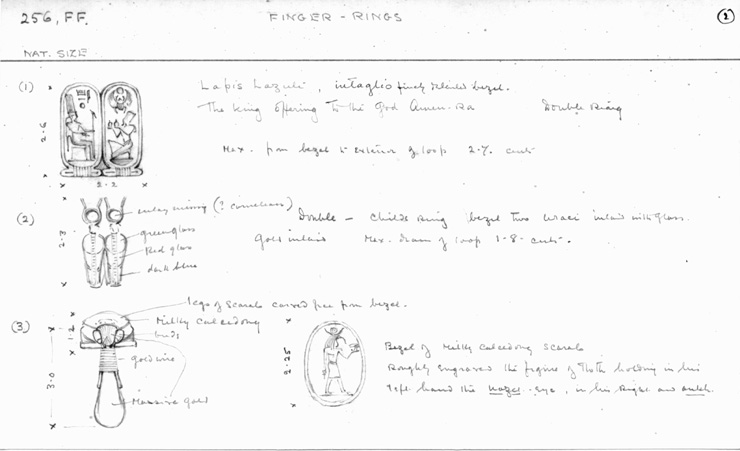 256, FF. FINGER - RINGS (2)
NAT. SIZE
(1) Lapis Lazuli, intaglio finely detailed bezel.
The King offering to the God Amen-Ra Double Ring
2.6
Max. from bezel to exterior of loop 2.7. cents
2.2
(2) inlay missing (? cornelian) Double - Childs Ring bezel Two Uraei inlaid with glass.
2.3
green glass Gold inlaid Max. diam of loop 1.8 cents.
Red glass
dark blue
legs of scarab carved free from bezel.
(3) Milky calcedony
1.2
buds
gold wire
3.0
Massive gold
2.25
Bezel of Milky calcedony scarab
Roughly engraved the figure of Thoth holding in his
left hand the uazet-eye, in his Right an ankh.